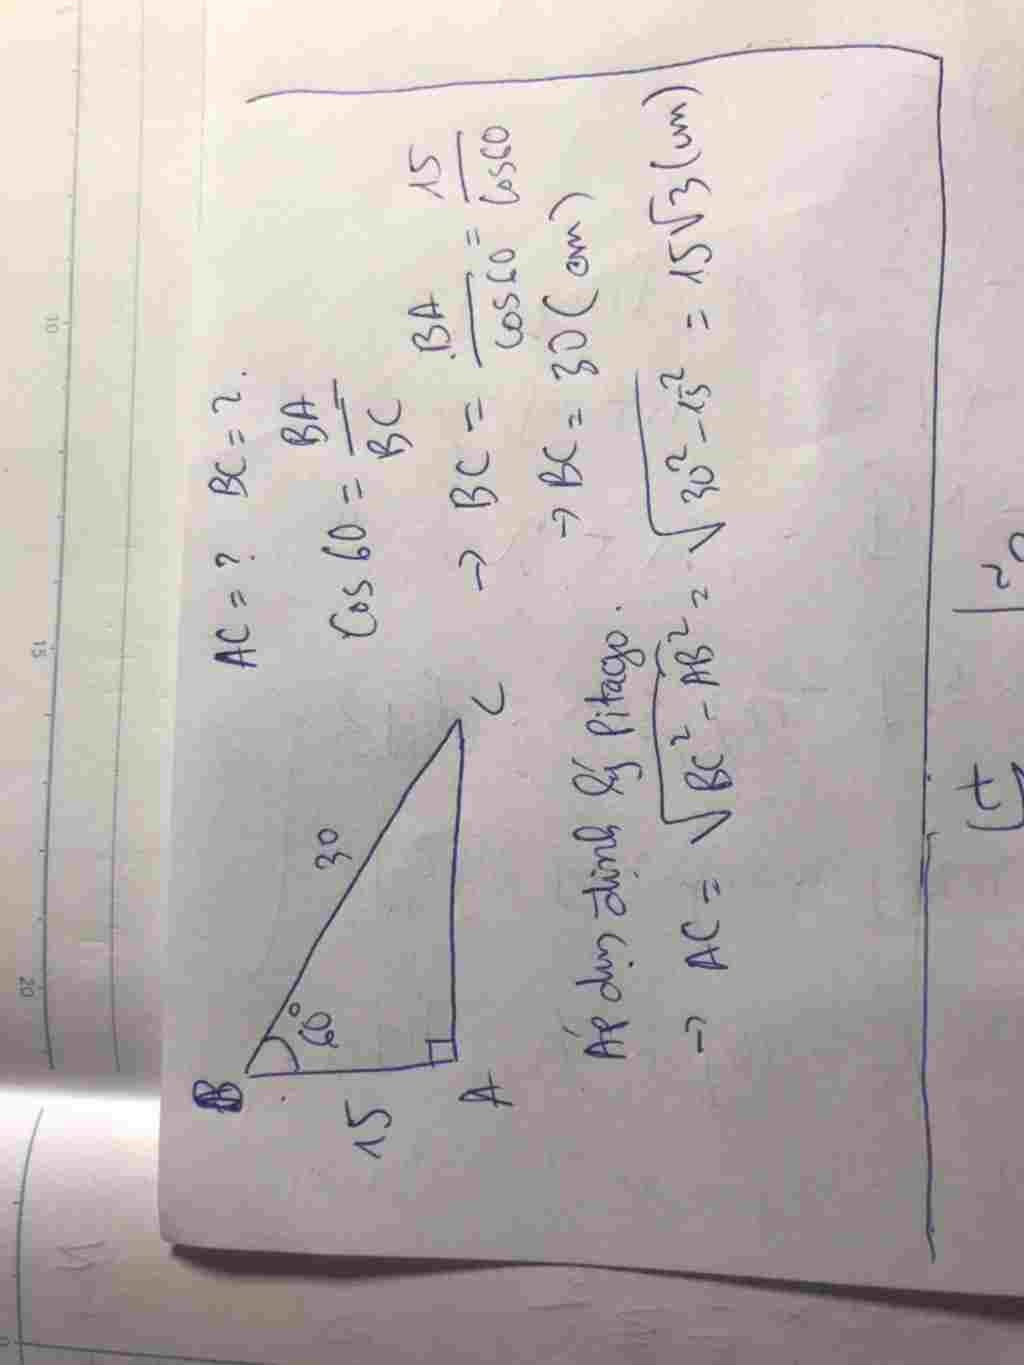 AC = ? BC = ?
B
60°
30
15
A
C
Cos 60 = BA / BC
→ BC = BA / cos 60 = 15 / cos 60
→ BC = 30 (cm)
Áp dụng định lý Pitago.
→ AC = √(BC² - AB²) = √(30² - 15²) = 15√3 (cm)
10
15
20